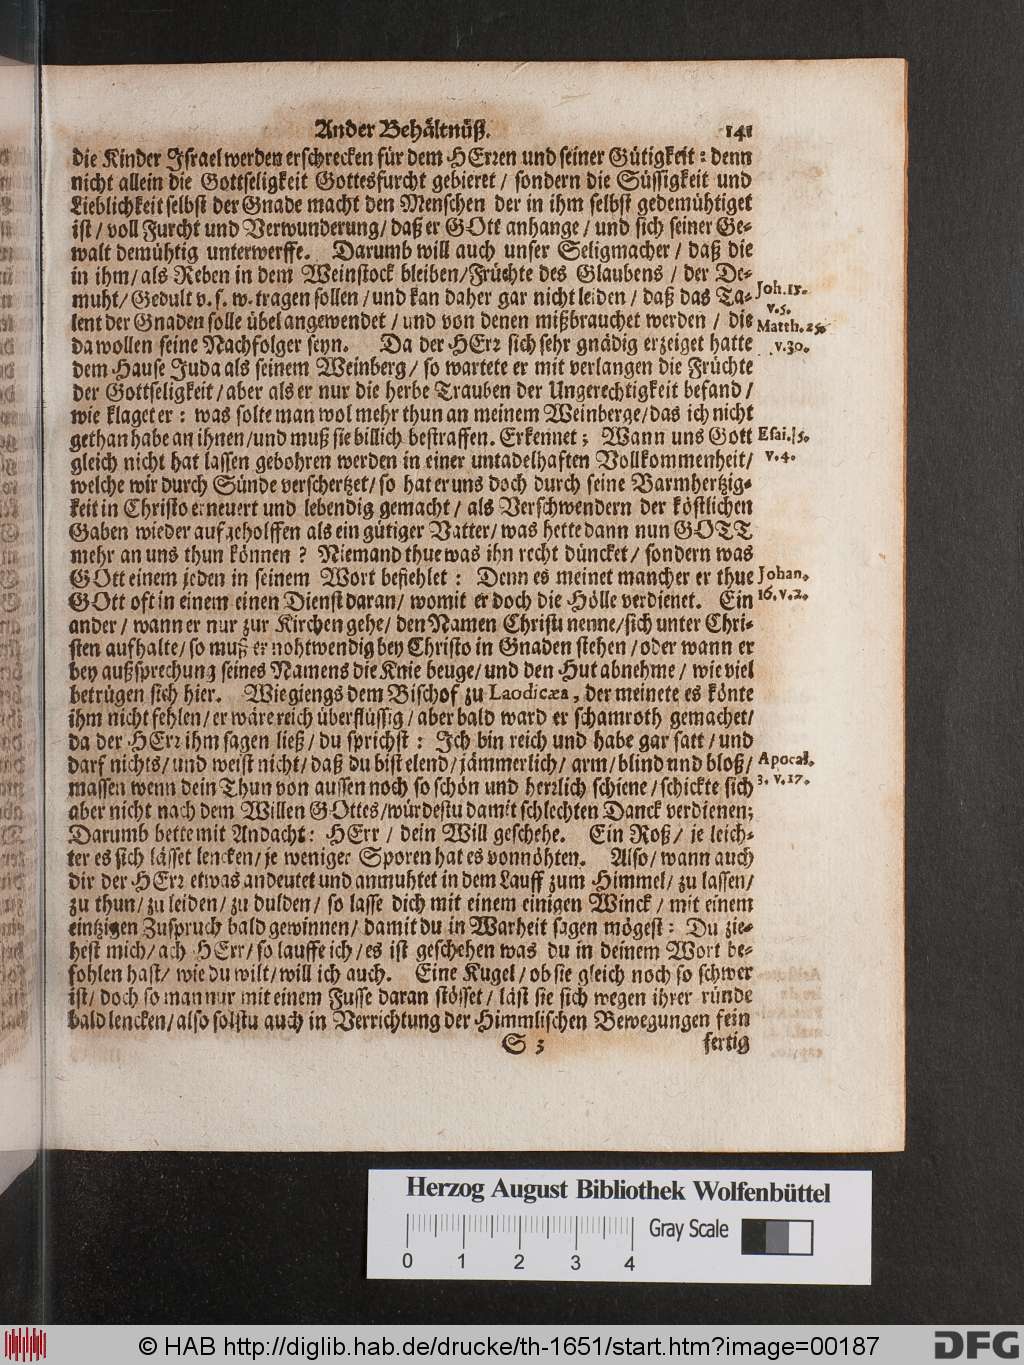 Ander Behältnüß. 141
die Kinder Israel werden erschrecken für dem HErren und seiner Gütigkeit: denn
nicht allein die Gottseligkeit Gottesfurcht gebieret / sondern die Süssigkeit und
Lieblichkeit selbst der Gnade macht den Menschen der in ihm selbst gedemühtiget
ist / voll Furcht und Verwunderung / daß er GOtt anhange / und sich seiner Ge-
walt demühtig unterwerffe. Darumb will auch unser Seligmacher / daß die
in ihm / als Reben in dem Weinstock bleiben / Früchte des Glaubens / der De-
muht / Gedult v. s. w. tragen sollen / und kan daher gar nicht leiden / daß das Ta-
Joh. 15.
v. 5.
lent der Gnaden solle übel angewendet / und von denen mißbrauchet werden / die
Matth. 25.
da wollen seine Nachfolger seyn. Da der HErr sich sehr gnädig erzeiget hatte
v. 30.
dem Hause Juda als seinem Weinberg / so wartete er mit verlangen die Früchte
der Gottseligkeit / aber als er nur die herbe Trauben der Ungerechtigkeit befand /
wie klaget er: was solte man wol mehr thun an meinem Weinberge / das ich nicht
gethan habe an ihnen / und muß sie billich bestraffen. Erkennet; Wann uns Gott
Esai. 5.
gleich nicht hat lassen gebohren werden in einer untadelhaften Vollkommenheit /
v. 4.
welche wir durch Sünde verschertzet / so hat er uns doch durch seine Barmhertzig-
keit in Christo erneuert und lebendig gemacht / als Verschwendern der köstlichen
Gaben wieder aufgeholffen als ein gütiger Vatter / was hette dann nun GOTT
mehr an uns thun können? Niemand thue was ihn recht düncket / sondern was
GOtt einem jeden in seinem Wort befiehlet: Denn es meinet mancher er thue
Johan.
GOtt oft in einem einen Dienst daran / womit er doch die Hölle verdienet. Ein
16. v. 2.
ander / wann er nur zur Kirchen gehe / den Namen Christi nenne / sich unter Chri-
sten aufhalte / so muß er nohtwendig bey Christo in Gnaden stehen / oder wann er
bey außsprechung seines Namens die Knie beuge / und den Hut abnehme / wie viel
betrügen sich hier. Wie giengs dem Bischof zu Laodicæa, der meinete es könte
ihm nicht fehlen / er wäre reich überflüssig / aber bald ward er schamroth gemachet /
da der HErr ihm sagen ließ / du sprichst: Ich bin reich und habe gar satt / und
darf nichts / und weist nicht / daß du bist elend / jämmerlich / arm / blind und bloß /
Apocal.
massen wenn dein Thun von aussen noch so schön und herrlich schiene / schickte sich
3. v. 17.
aber nicht nach dem Willen GOttes / würdestu damit schlechten Danck verdienen;
Darumb bette mit Andacht: HErr / dein Will geschehe. Ein Roß / je leich-
ter es sich lässet lencken / je weniger Sporen hat es vonnöhten. Also / wann auch
dir der HErr etwas andeutet und anmuhtet in dem Lauff zum Himmel / zu lassen /
zu thun / zu leiden / zu dulden / so lasse dich mit einem einigen Winck / mit einem
eintzigen Zuspruch bald gewinnen / damit du in Warheit sagen mögest: Du zie-
hest mich / ach HErr / so lauffe ich / es ist geschehen was du in deinem Wort be-
fohlen hast / wie du wilt / will ich auch. Eine Kugel / ob sie gleich noch so schwer
ist / doch so man nur mit einem Fusse daran stösset / läst sie sich wegen ihrer ründe
bald lencken / also solstu auch in Verrichtung der Himmlischen Bewegungen fein
S 3 fertig
Herzog August Bibliothek Wolfenbüttel
Gray Scale
0 1 2 3 4
© HAB http://diglib.hab.de/drucke/th-1651/start.htm?image=00187
DFG